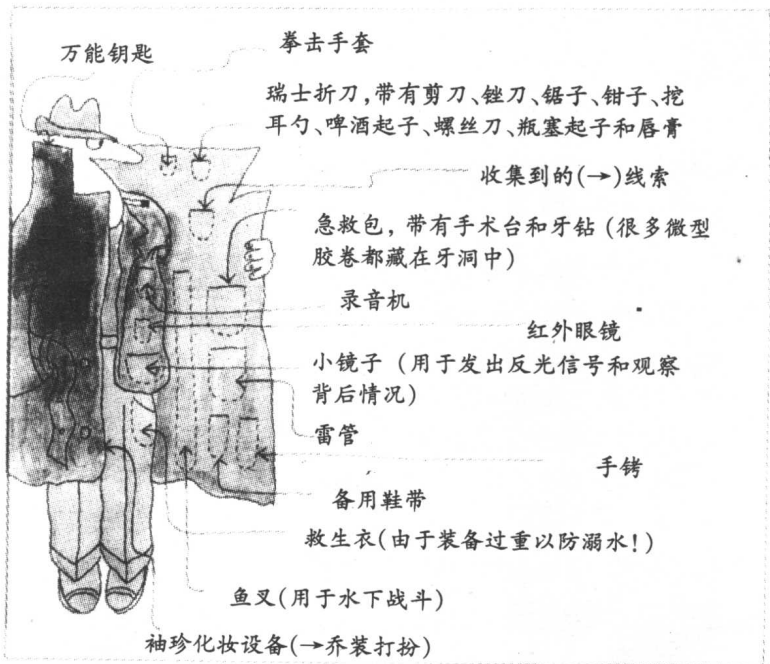 万能钥匙
拳击手套
瑞士折刀,带有剪刀、锉刀、锯子、钳子、挖
耳勺、啤酒起子、螺丝刀、瓶塞起子和唇膏
收集到的(→)线索
急救包, 带有手术台和牙钻 (很多微型
胶卷都藏在牙洞中)
录音机
红外眼镜
小镜子 (用于发出反光信号和观察
背后情况)
雷管
手铐
备用鞋带
救生衣(由于装备过重以防溺水!)
鱼叉(用于水下战斗)
袖珍化妆设备(→乔装打扮)